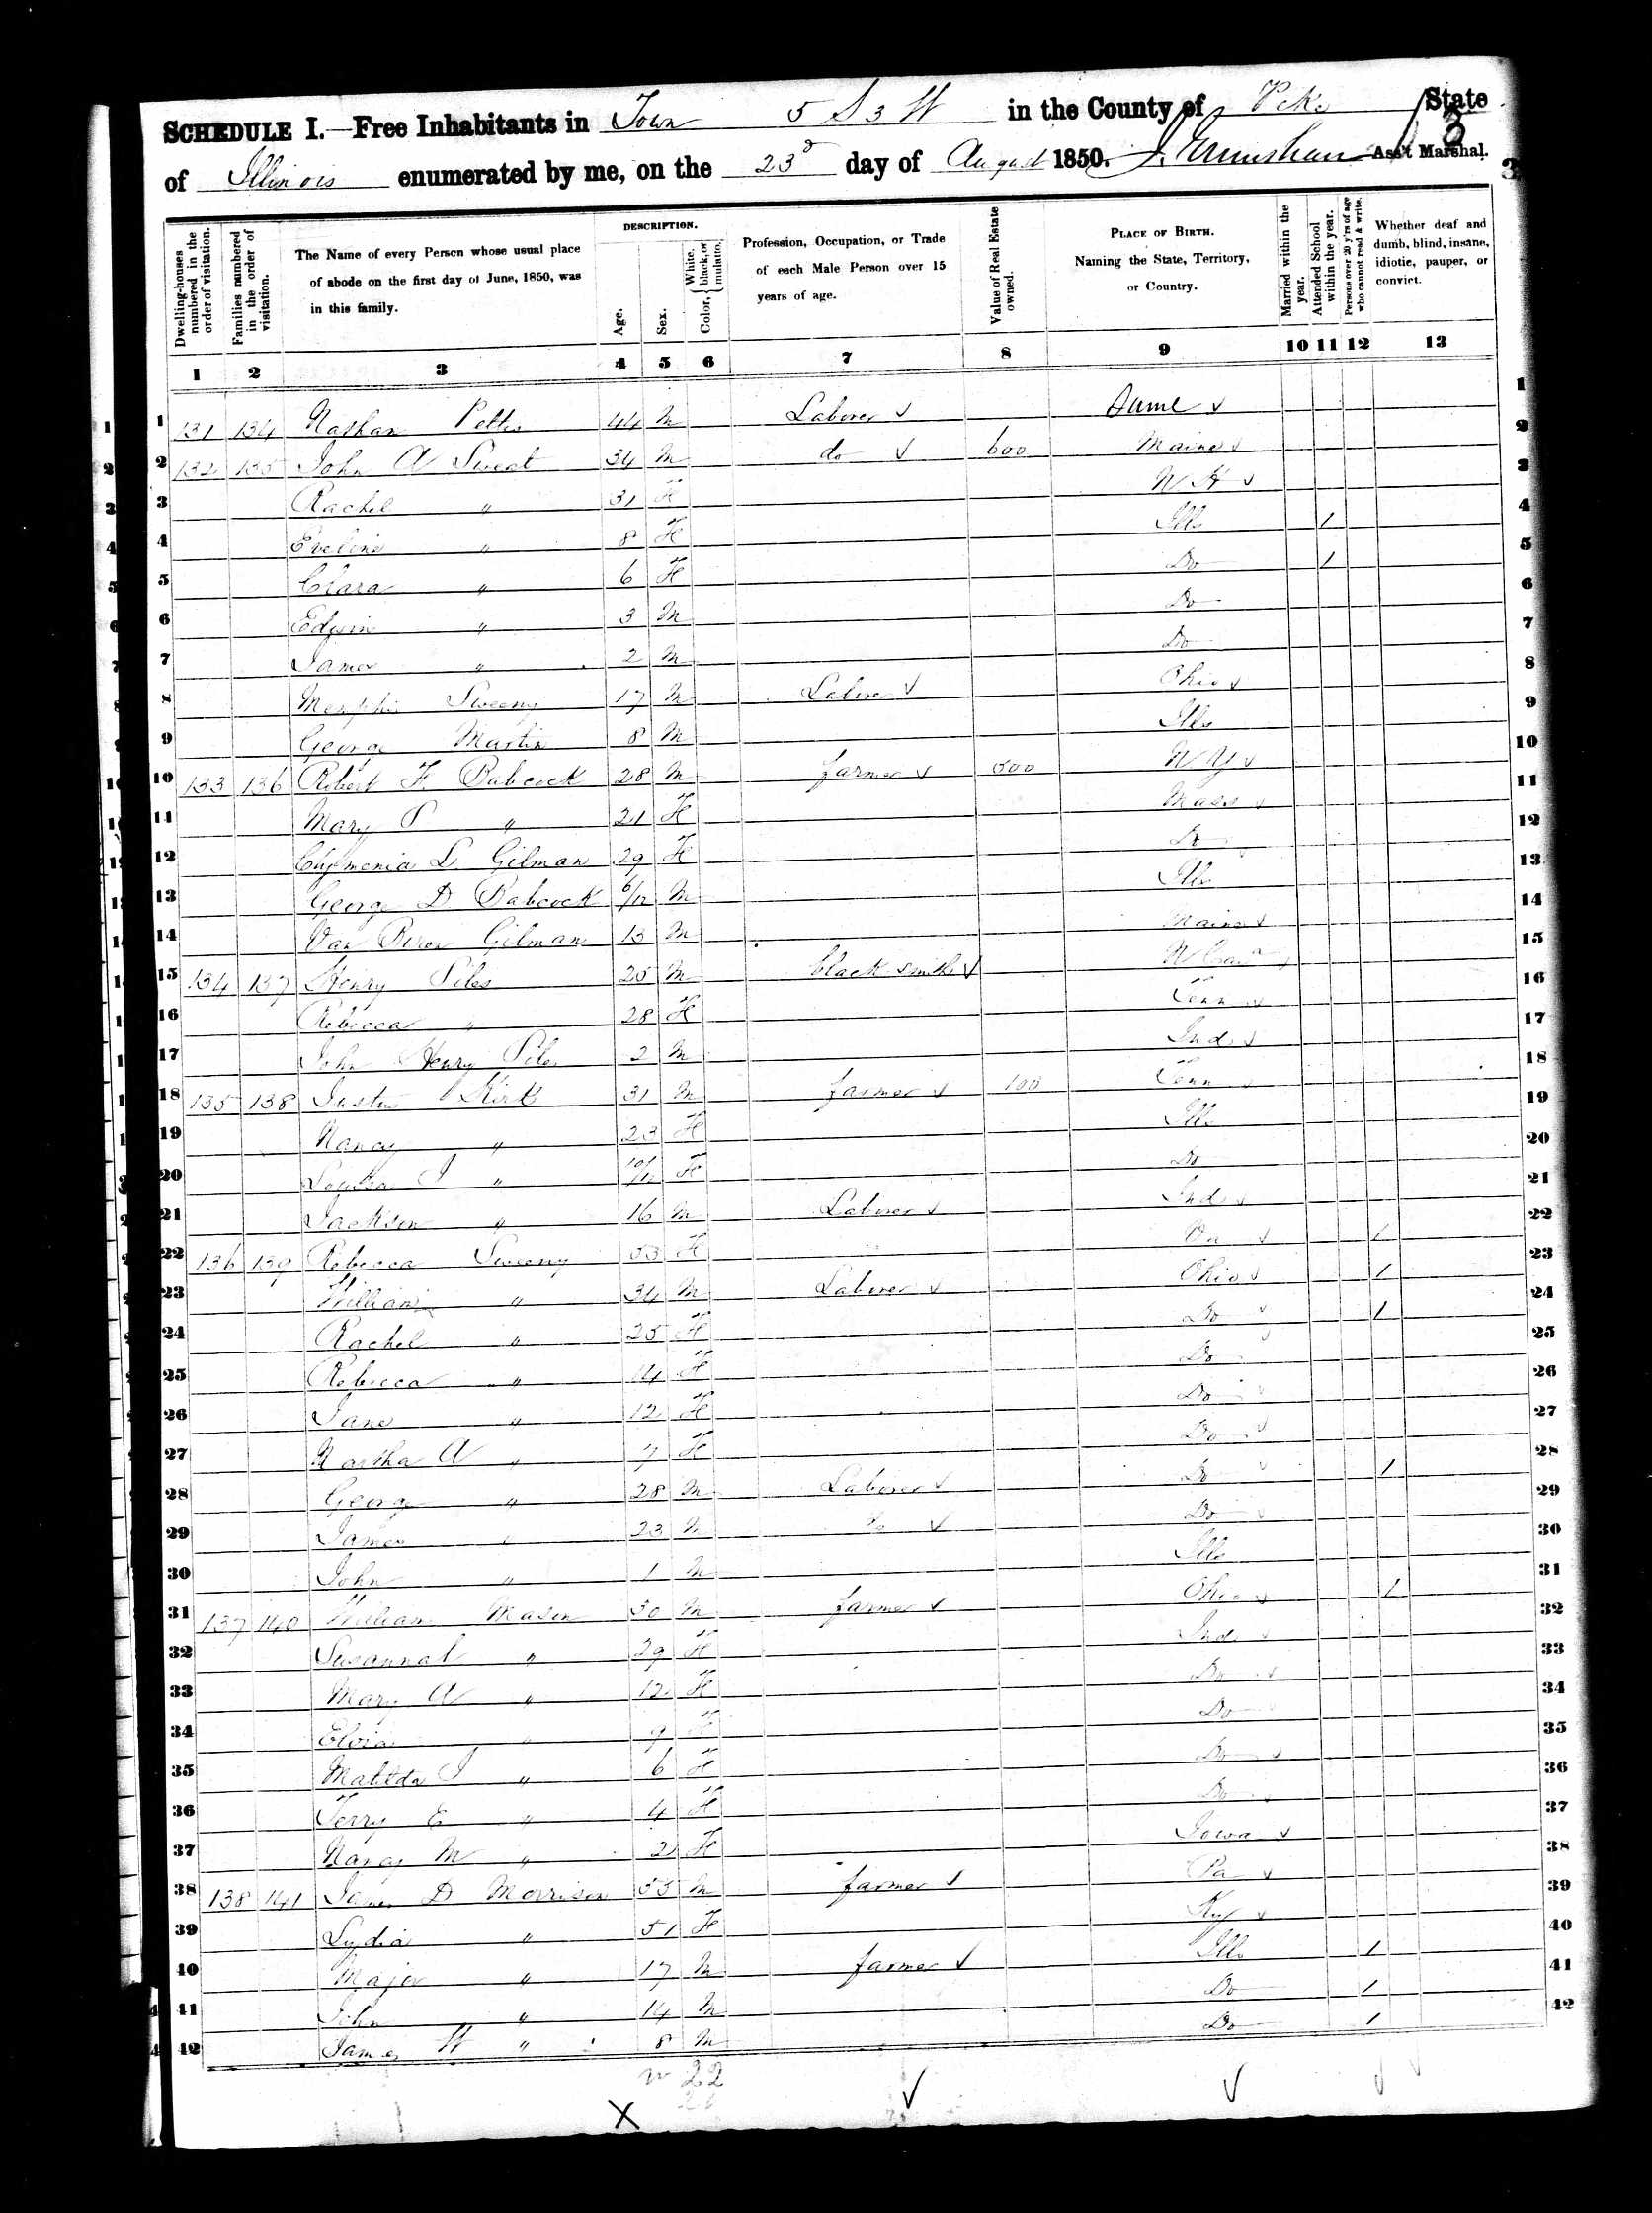 SCHEDULE I.—Free Inhabitants in Town 5 S 3 W in the County of Pike State
of Illinois enumerated by me, on the 23d day of August 1850. Ass't Marshal.
3
Dwelling-houses numbered in the order of visitation.
Families numbered in the order of visitation.
The Name of every Person whose usual place of abode on the first day of June, 1850, was in this family.
DESCRIPTION.
Age.
Sex.
Color, { White, black, or mulatto.
Profession, Occupation, or Trade of each Male Person over 15 years of age.
Value of Real Estate owned.
PLACE OF BIRTH. Naming the State, Territory, or Country.
Married within the year.
Attended School within the year.
Persons over 20 y'rs of age who cannot read & write.
Whether deaf and dumb, blind, insane, idiotic, pauper, or convict.
1 2 3 4 5 6 7 8 9 10 11 12 13
1 131 134 Nathan 44 M Laborer 1
2 132 135 John A Sweat 34 M do 600 Maine 2
3 Rachel " 31 F N H 3
4 Eveline " 8 F Ills 1 4
5 Clara " 6 F Do 1 5
6 Edwin " 3 M Do 6
7 James " 2 M Do 7
8 Sweeny 17 M Laborer Ohio 8
9 George Martin 8 M Ills 9
10 133 136 Robert F. Babcock 28 M farmer 500 N Y 10
11 Mary P " 21 F Mass 11
12 L Gilman 29 F Do 12
13 George D Babcock 6/12 M Ills 13
14 Van Buren Gilman 13 M Maine 14
15 134 137 Henry Piles 25 M black smith N Car 15
16 Rebecca " 28 F Tenn 16
17 John Henry Piles 2 M Ind 17
18 135 138 Kirk 31 M farmer 100 Tenn 18
19 Nancy " 23 F Ills 19
20 Louisa J " 10/12 F Do 20
21 Jackson " 16 M Laborer Ind 21
22 136 139 Rebecca Sweeny 53 F 1 22
23 William " 34 M Laborer Ohio 1 23
24 Rachel " 25 F Do 1 24
25 Rebecca " 14 F Do 25
26 Jane " 12 F Do 26
27 Martha A " 7 F Do 27
28 George " 28 M Laborer Do 1 28
29 James " 23 M Do Do 29
30 John " 1 M Ills 30
31 137 140 William Mason 30 M farmer Ohio 1 31
32 Susannah " 29 F Ind 32
33 Mary A " 12 F Do 33
34 9 F Do 34
35 Matilda J " 6 F Do 35
36 E " 4 F Do 36
37 Nancy M " 2 F Iowa 37
38 138 141 James D Morrison 55 M farmer Pa 38
39 Lydia " 51 F Ky 39
40 Major " 17 M farmer Ills 1 40
41 John " 14 M Do 1 41
42 James W " 8 M Do 1 42
22